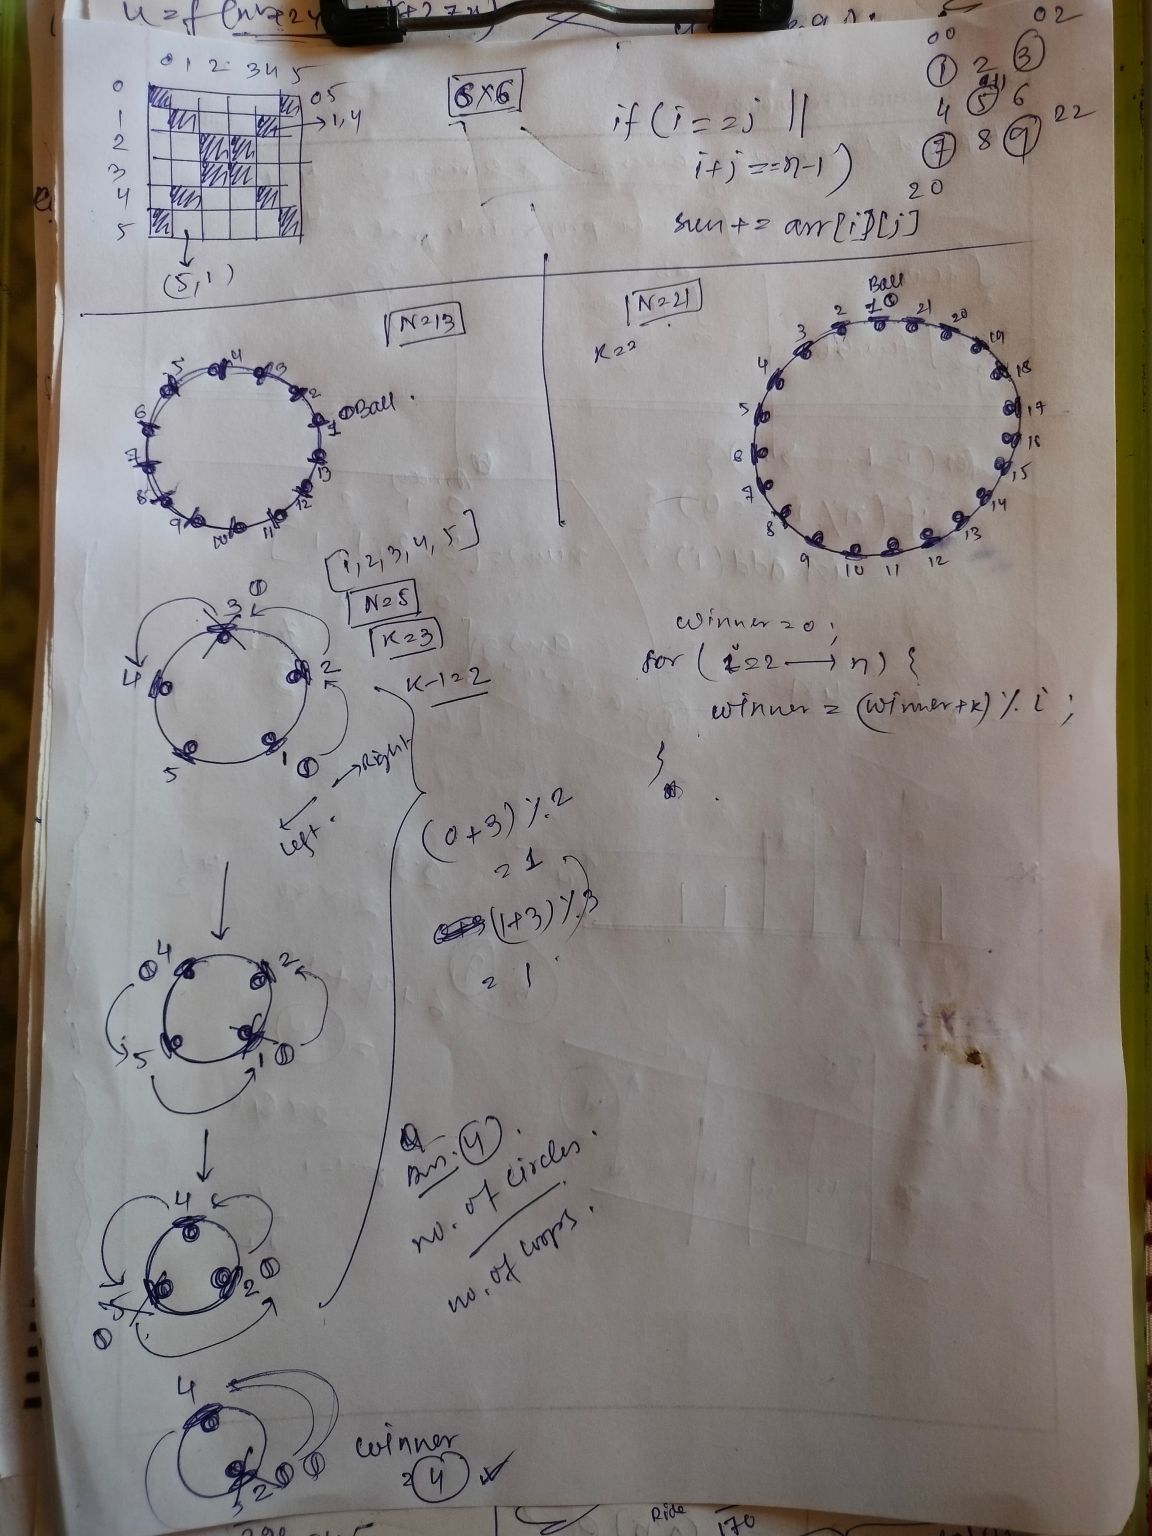 0 1 2 3 4 5
0
1
2
3
4
5
05
1,4
(5,1)
6×6
if (i==j ||
i+j==n-1)
sum += arr[i][j]
00
02
1 2 3
11
4 5 6
7 8 9
22
20
N=13
5 4 3 2 1
Ball
6 7 8 9 10 11 12 13
N=21
K=2
Ball
1 2 3 4 5 6 7 8 9 10 11 12 13 14 15 16 17 18 19 20 21
[1,2,3,4,5]
N=5
K=3
K-1=2
3
4 2
5 1
Right
Left
winner=0;
for (i=2 → n) {
winner = (winner+k) % i;
}
(0+3)%2
= 1
(1+3)%3
= 1
4 2
5 1
Ans. 4
no. of circles
no. of loops
4
5 2
4
2
winner
= 4
Ride
170